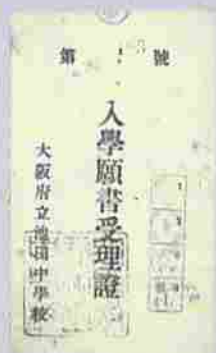 第 號
入學願書受理證
大阪府立池田中學校